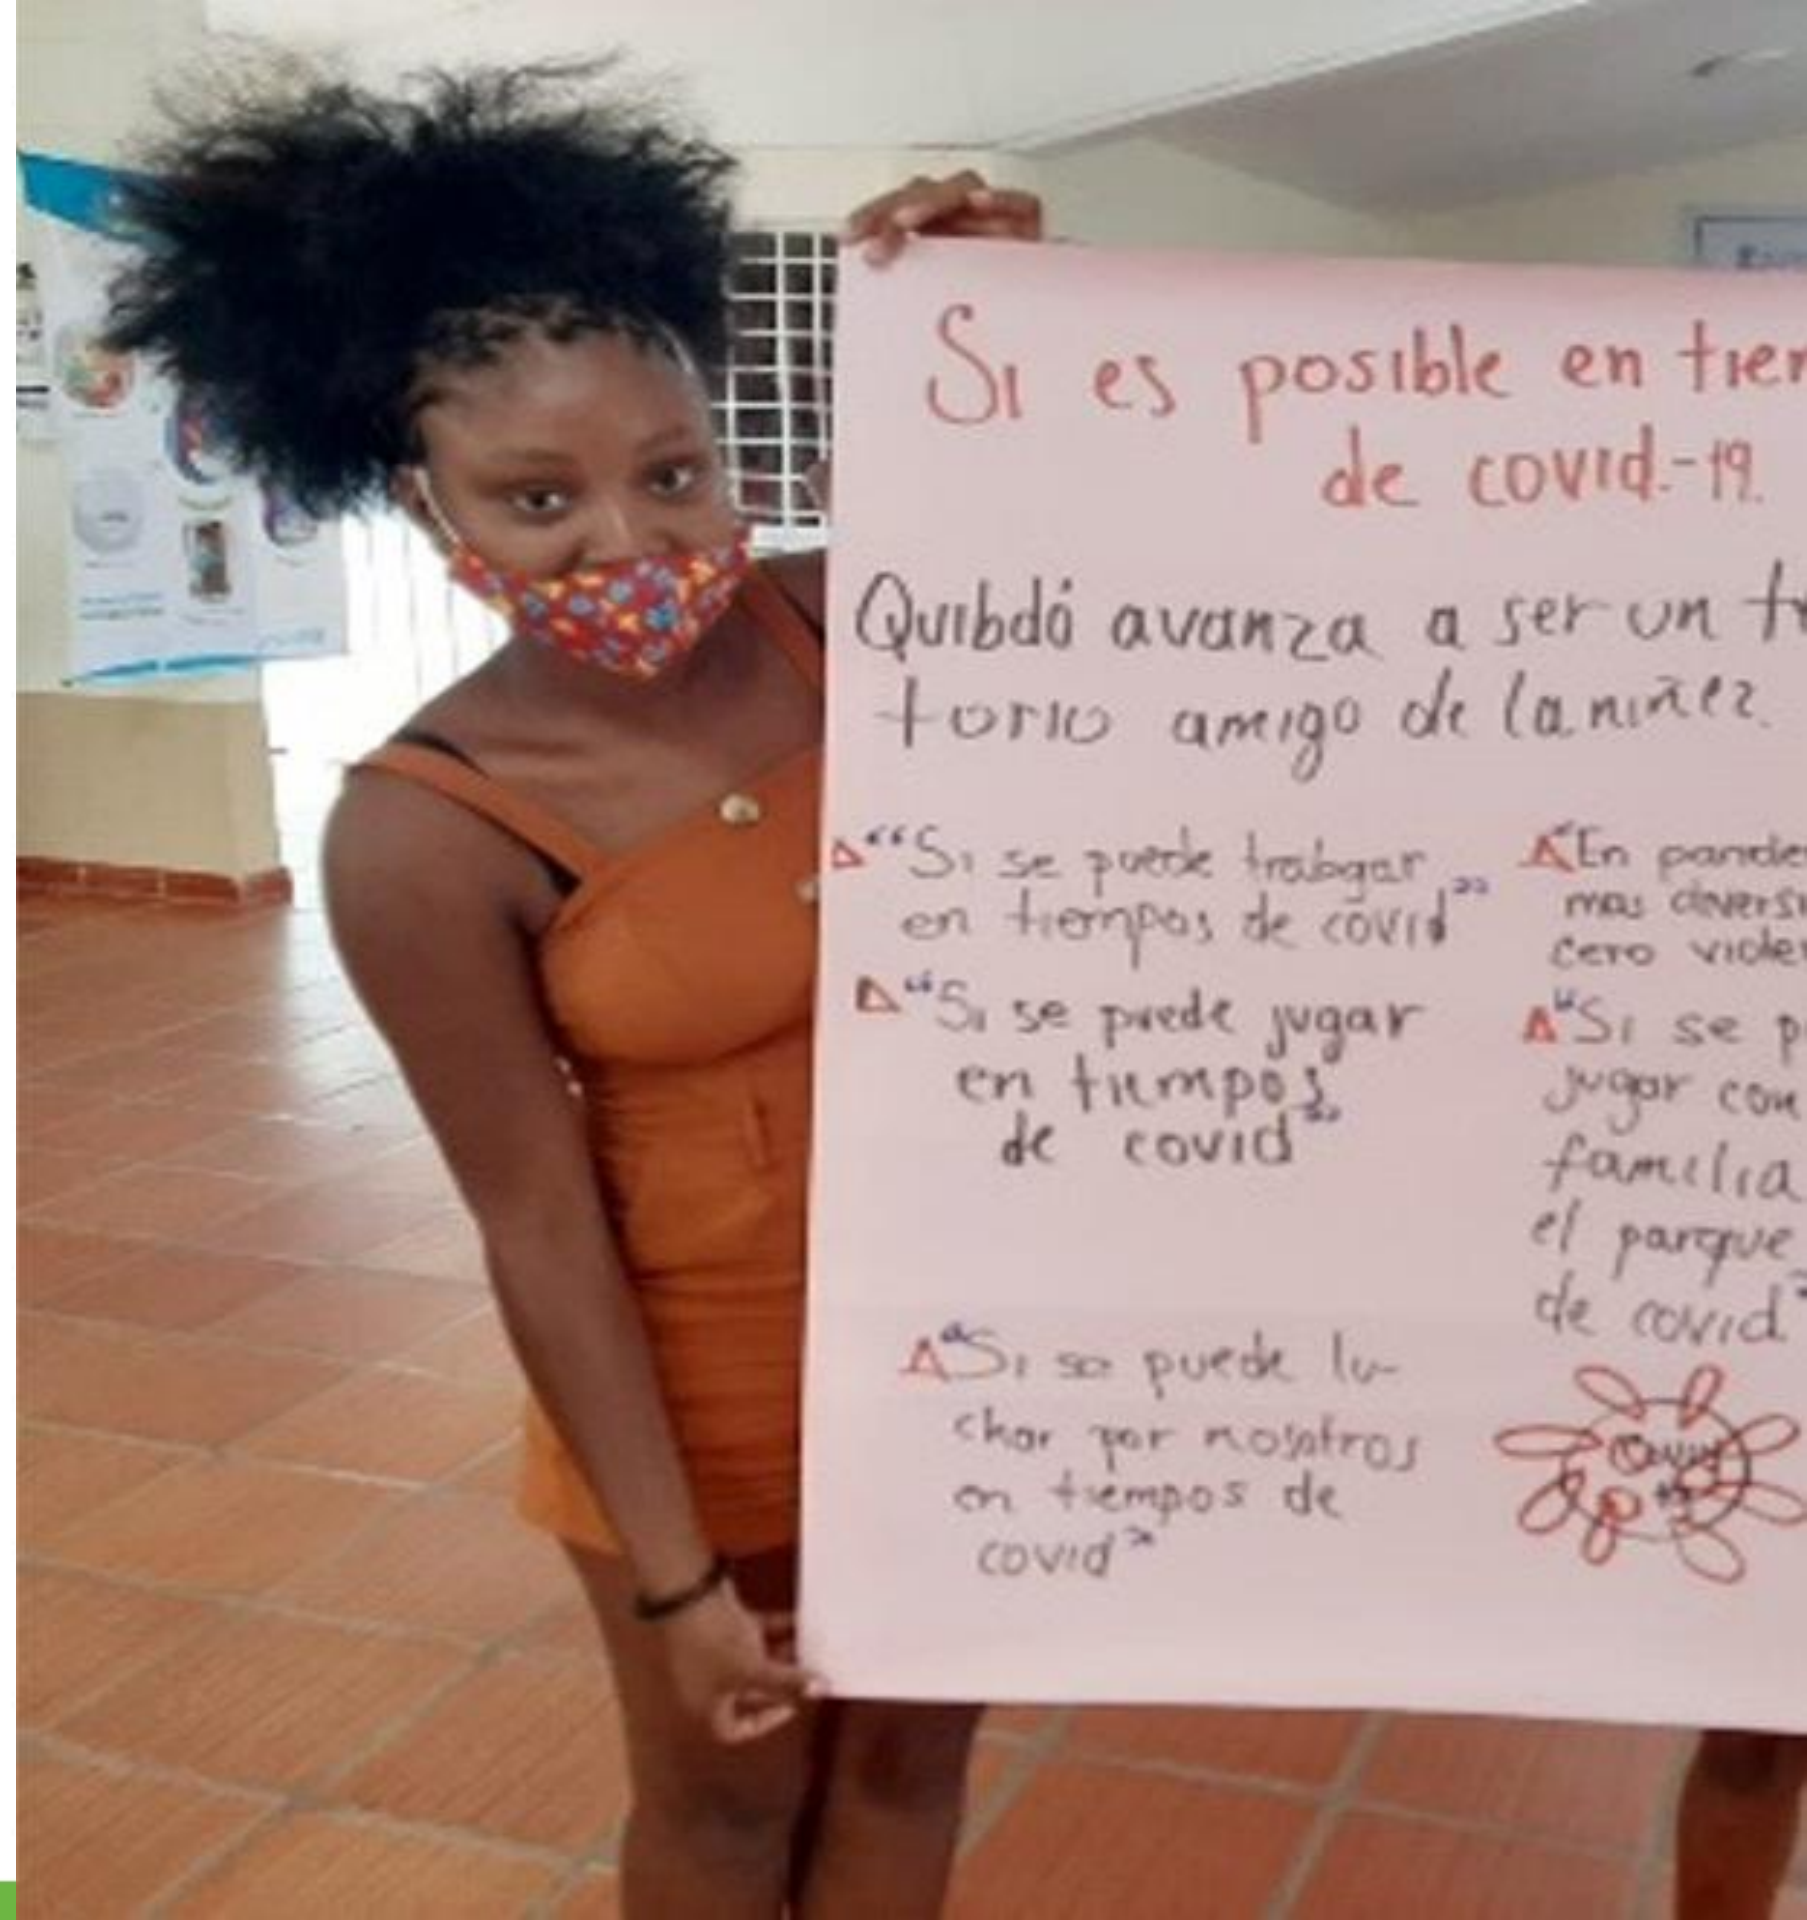 Si es posible en tiem
de covid.-19.
Quibdó avanza a ser un te
torio amigo de la niñez.
"Si se puede trabajar
en tiempos de covid"
"Si se puede jugar
en tiempos
de covid"
"Si se puede lu-
char por nosotros
en tiempos de
covid"
"En pande
mas divers
cero viole
"Si se p
jugar con
familia
el parque
de covid"